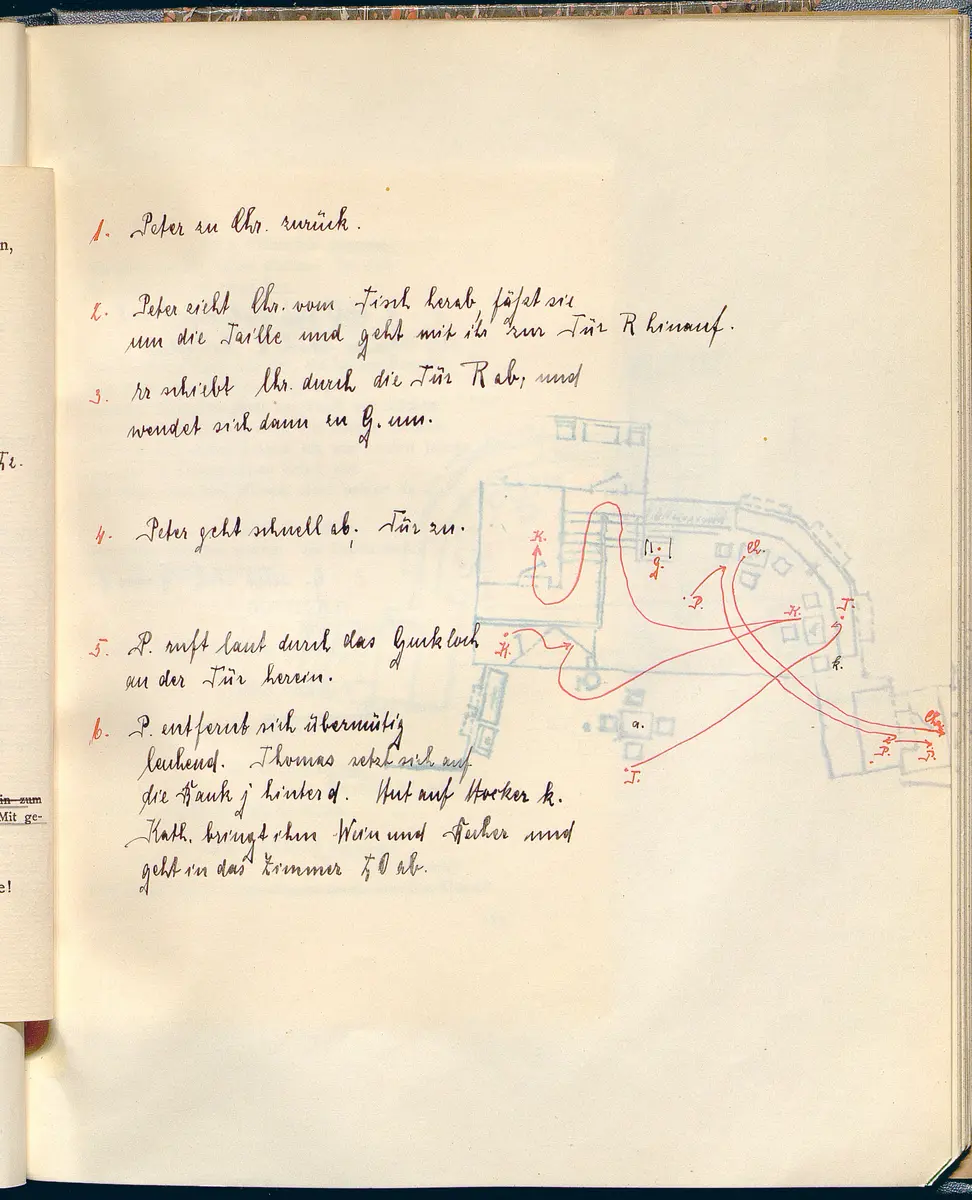 n,
Fz.
in zum
Mit ge-
e!
1. Peter zu Chr. zurück.
2. Peter zieht Chr. vom Tisch herab, faßt sie
um die Taille und geht mit ihr zur Tür R hinauf.
3. Er schiebt Chr. durch die Tür R ab, und
wendet sich dann zu G. um.
4. Peter geht schnell ab; Tür zu.
5. P. ruft laut durch das Guckloch
an der Tür herein.
6. P. entfernt sich übermütig
lachend. Thomas setzt sich auf
die Bank j hinter d. Hut auf Hocker k.
Kath. bringt ihm Wein und Becher und
geht in das Zimmer
ab.
K.
G.
Ch.
P.
K.
T.
K.
k.
a.
Chr.
P.
P.
T.